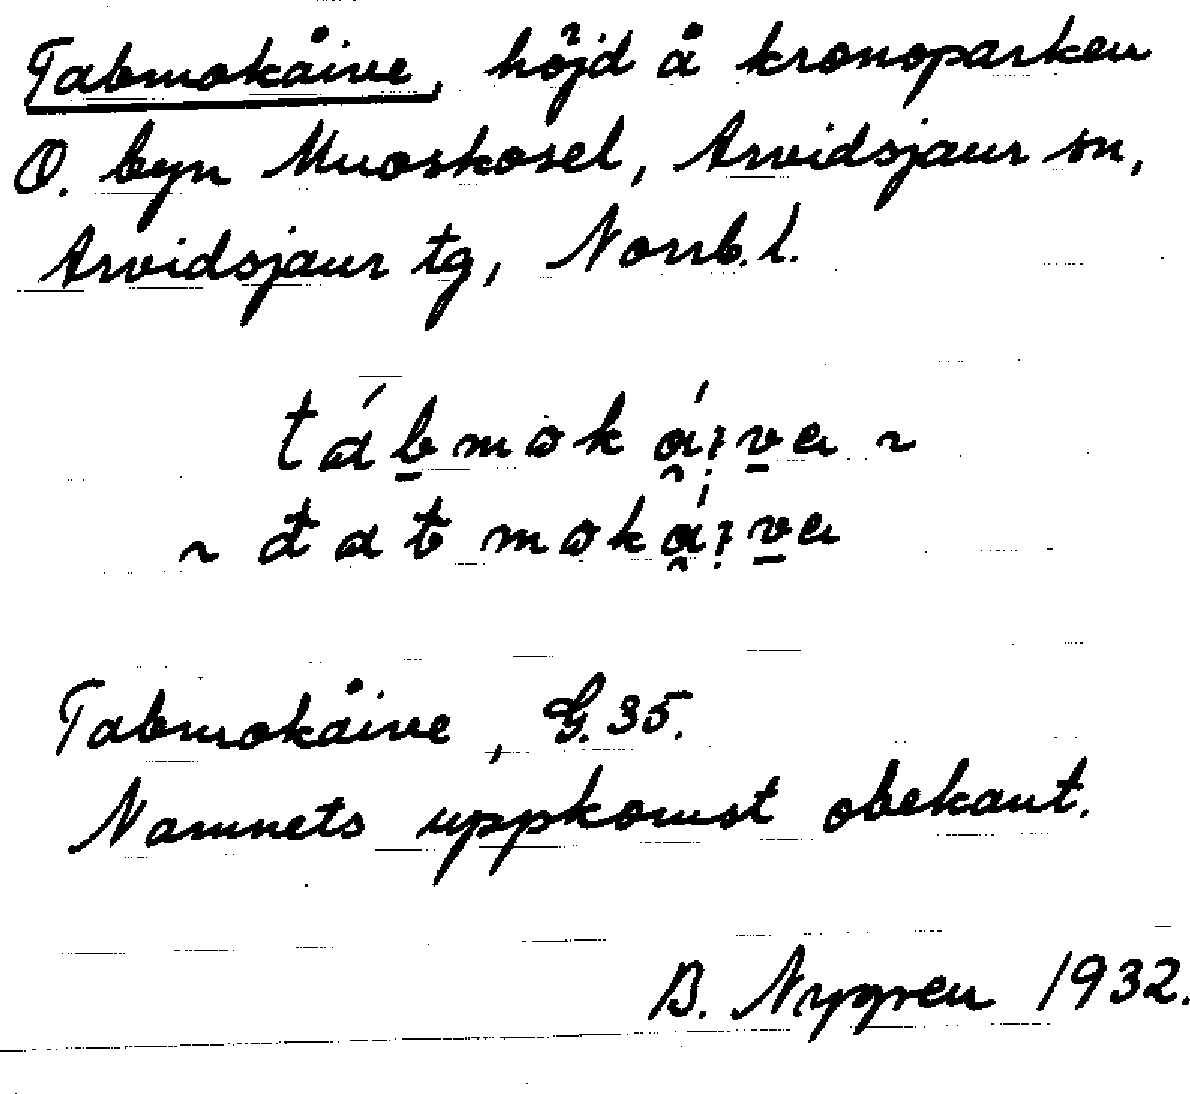 Tabmokåive, höjd å kronoparken
O. byn Muoskosel, Arvidsjaur sn,
Arvidsjaur tg, Norrb. l.
tábmokái̯va ~
~ đaŧmokái̯va
Tabmokåive, G. 35.
Namnets uppkomst obekant.
B. Nygren 1932.